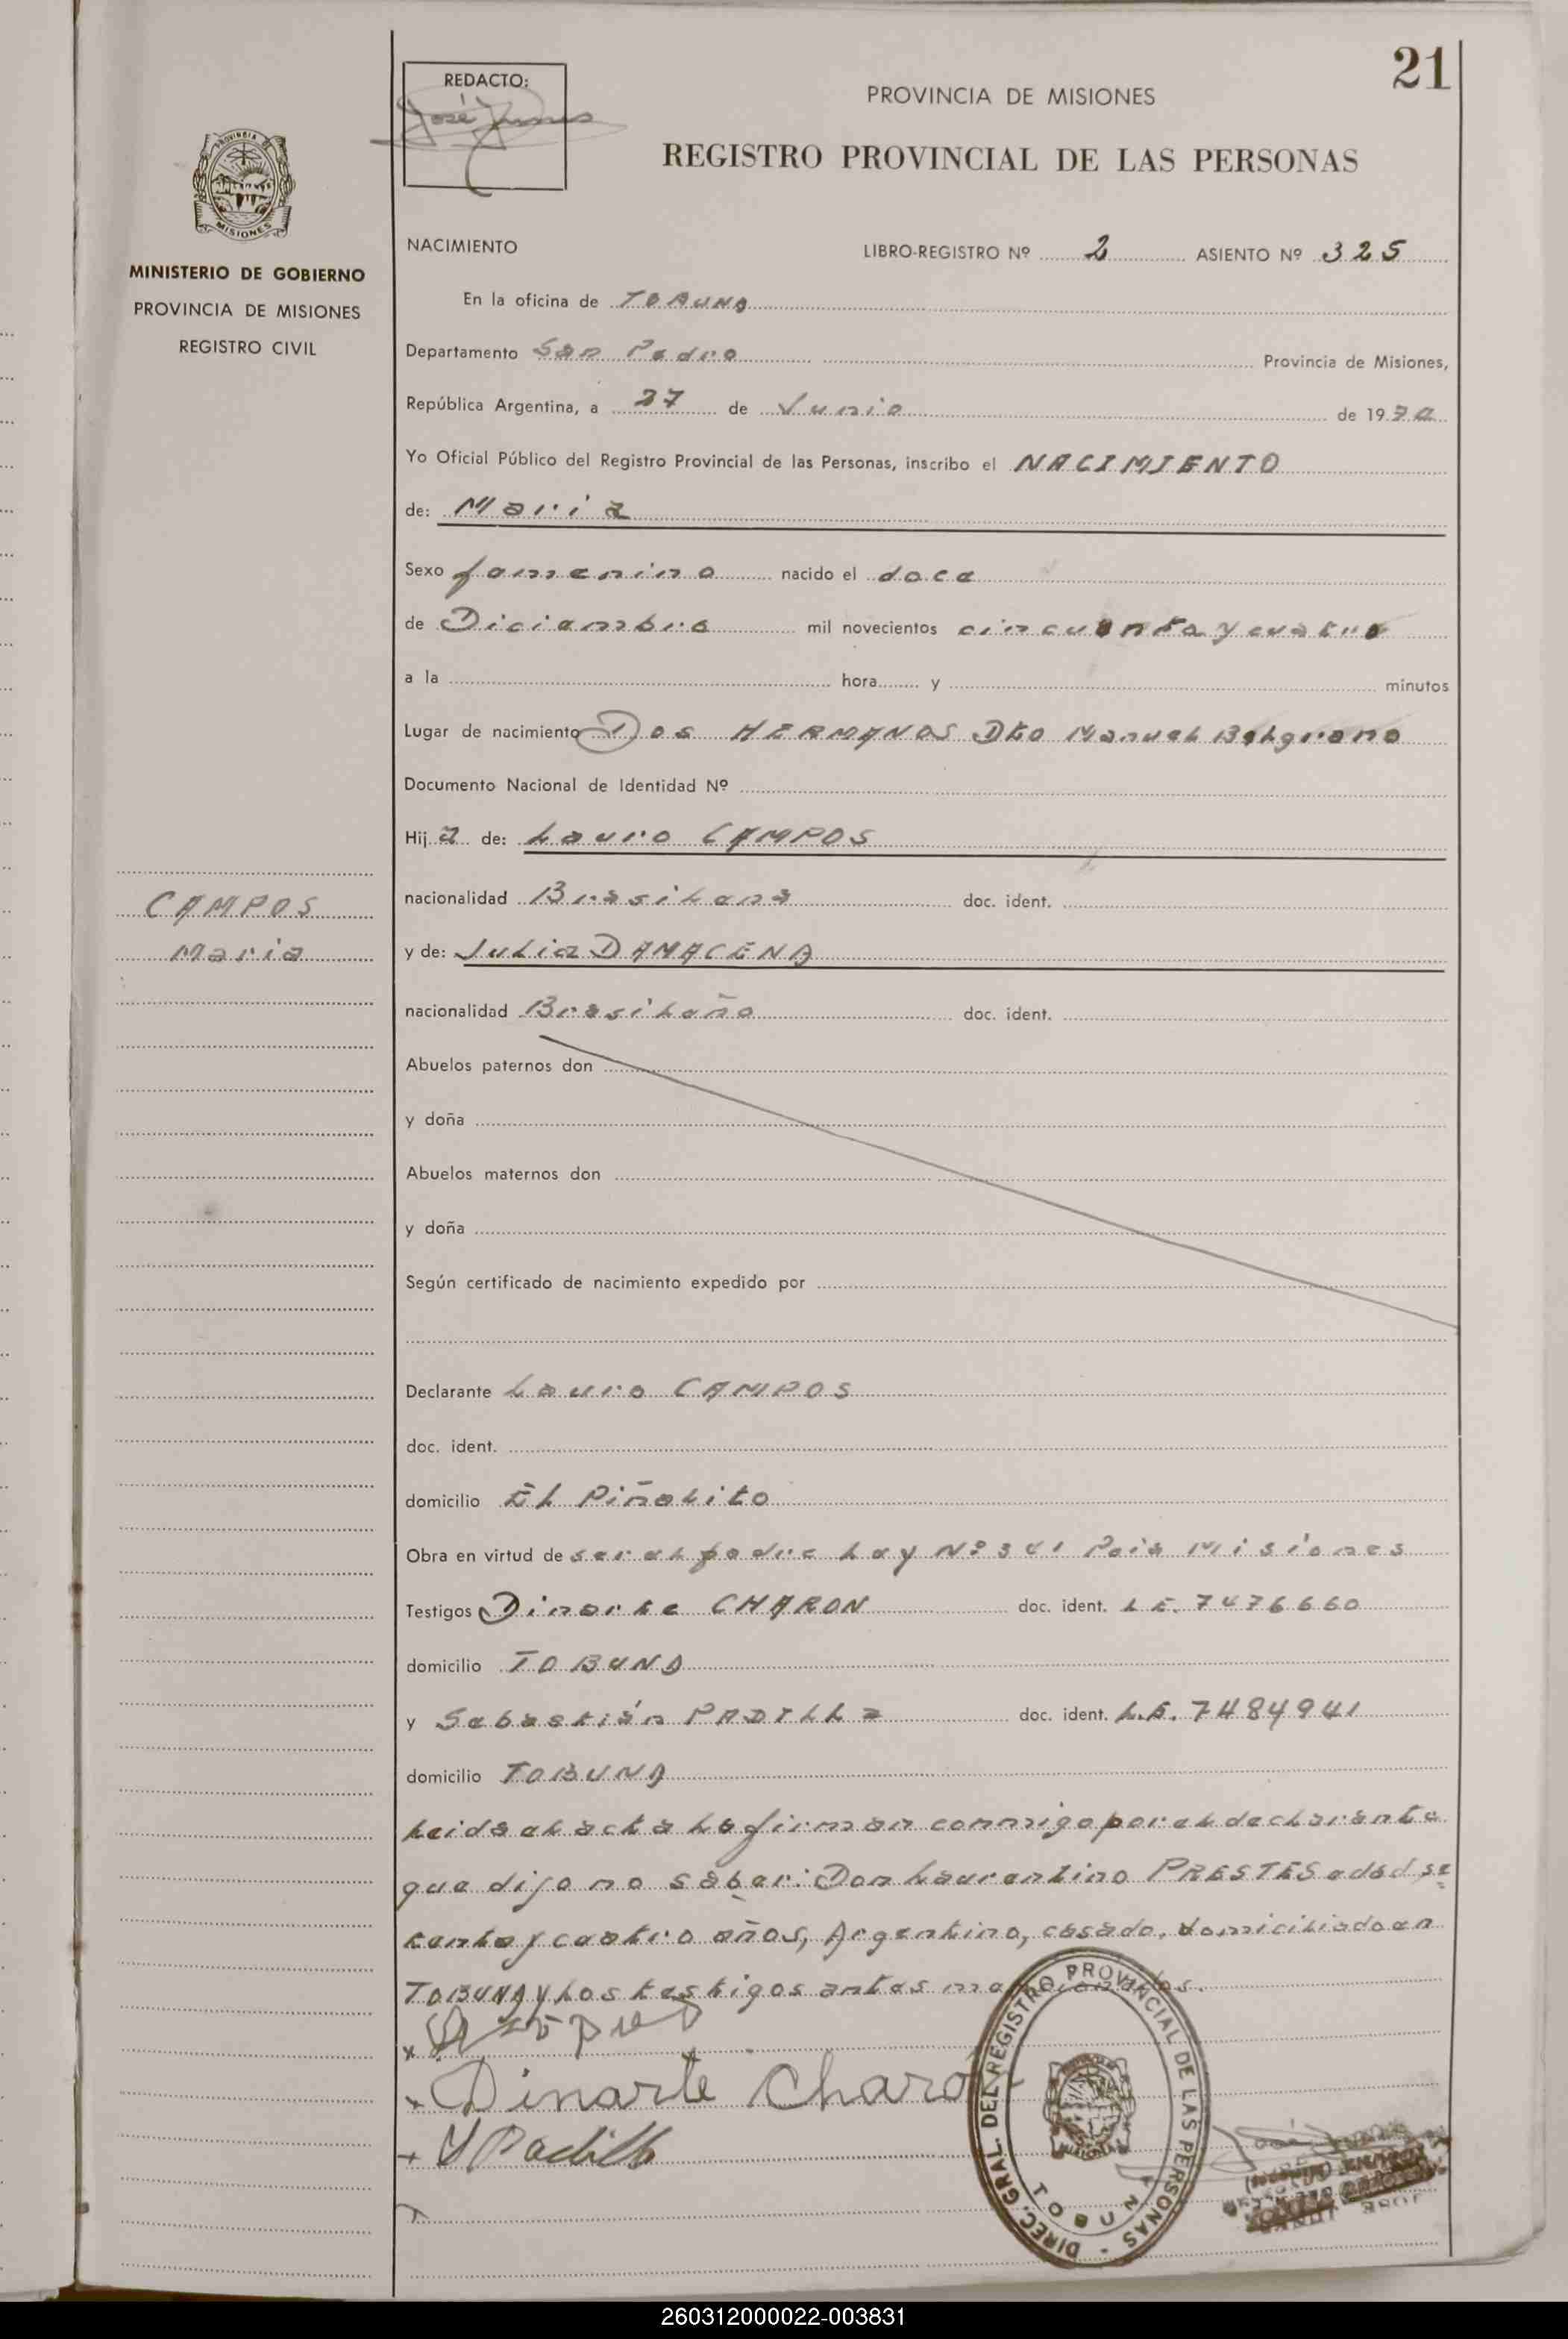 21
REDACTO:
PROVINCIA DE MISIONES
REGISTRO PROVINCIAL DE LAS PERSONAS
PROVINCIA DE
MISIONES
MINISTERIO DE GOBIERNO
PROVINCIA DE MISIONES
REGISTRO CIVIL
NACIMIENTO LIBRO-REGISTRO Nº 2 ASIENTO Nº 325
En la oficina de TOBUNA
Departamento San Pedro Provincia de Misiones,
República Argentina, a 27 de Junio de 1970
Yo Oficial Público del Registro Provincial de las Personas, inscribo el NACIMIENTO
de: Maria
Sexo femenino nacido el doce
de Diciembre mil novecientos cincuenta y cuatro
a la hora y minutos
Lugar de nacimiento Dos HERMANOS Dto Manuel Belgrano
Documento Nacional de Identidad Nº
Hija de: Lauro CAMPOS
nacionalidad Brasilena doc. ident.
CAMPOS
Maria
y de: Julia DAMACENA
nacionalidad Brasileña doc. ident.
Abuelos paternos don
y doña
Abuelos maternos don
y doña
Según certificado de nacimiento expedido por
Declarante Lauro CAMPOS
doc. ident.
domicilio El Piñalito
Obra en virtud de ser el padre Ley Nº 341 Pcia Misiones
Testigos Dinarte CHARON doc. ident. L.E. 7476660
domicilio TOBUNA
y Sebastián PADILLa doc. ident. L.E. 7484941
domicilio TOBUNA
Leida el acta la firman conmigo por el declarante
que dijo no saber: Don Laurentino PRESTES edad, se
tenta y cuatro años, Argentino, casado, domiciliado en
TOBUNA y los testigos antes mencionados.
Dinarte Charon
S Padilla
DIREC. GRAL. DEL REGISTRO PROVINCIAL DE LAS PERSONAS
TOBUNA
260312000022-003831